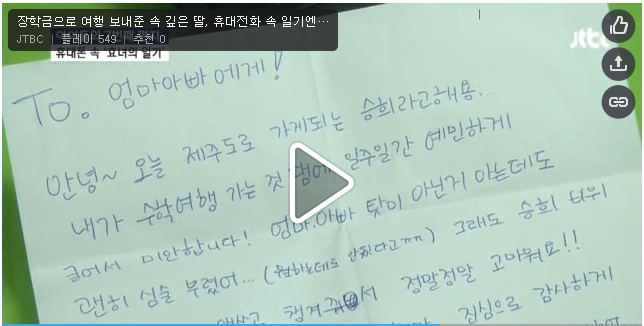 장학금으로 여행 보내준 속 깊은 딸, 휴대전화 속 일기엔…
JTBC | 플레이 549 추천 0
휴대폰 속 '효녀의 일기'
jtbc
To. 엄마아빠에게!
안녕~ 오늘 제주도로 가게되는 승희라고해용...
내가 수학여행 가는 것 땜에 일주일간 예민하게
굴어서 미안합니다! 엄마.아빠 탓이 아닌지 아는데도
괜히 심술 부렸어... (원하는데로 안됬다고ㅠㅠ) 그래도 승희
챙겨줘서 정말정말 고마워요!!
진심으로 감사하게